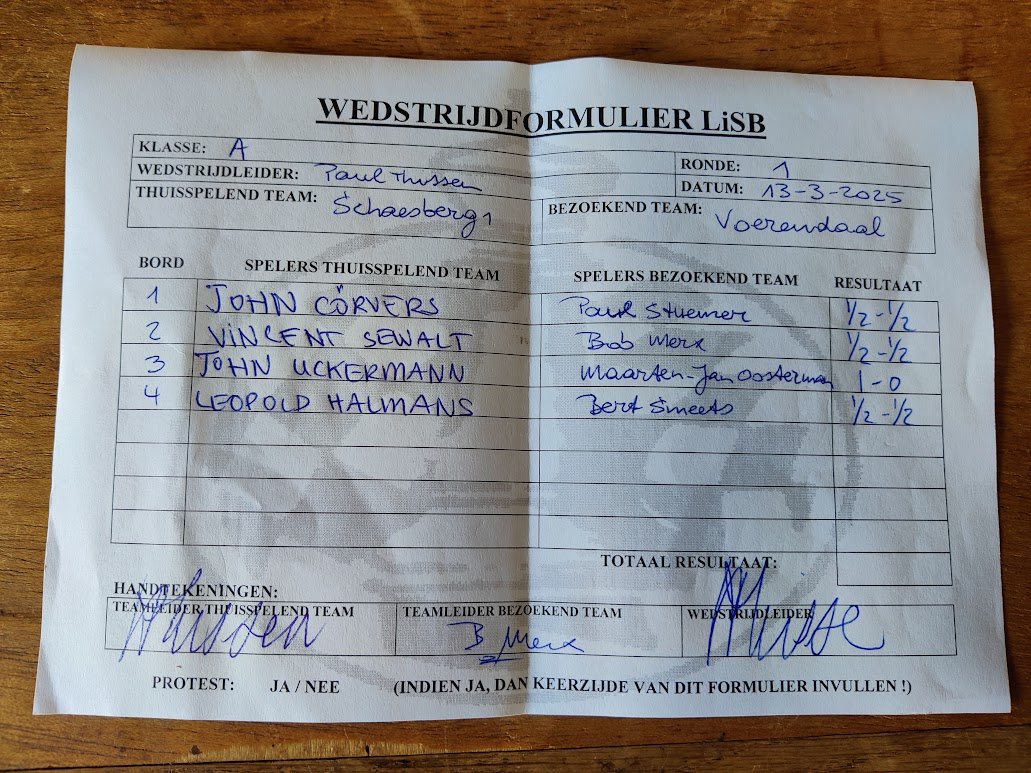 WEDSTRIJDFORMULIER LiSB
KLASSE: A
RONDE: 1
WEDSTRIJDLEIDER: Paul Thissen
DATUM: 13-3-2025
THUISSPELEND TEAM: Schaesberg 1
BEZOEKEND TEAM: Voerendaal
BORD SPELERS THUISSPELEND TEAM SPELERS BEZOEKEND TEAM RESULTAAT
1 JOHN CÖRVERS Paul Stuemer 1/2-1/2
2 VINCENT SEWALT Bob Merx 1/2-1/2
3 JOHN UCKERMANN Maarten-Jan Oosterman 1-0
4 LEOPOLD HALMANS Bert Smeets 1/2-1/2
TOTAAL RESULTAAT:
HANDTEKENINGEN:
TEAMLEIDER THUISSPELEND TEAM TEAMLEIDER BEZOEKEND TEAM WEDSTRIJDLEIDER
B Merx
PROTEST: JA / NEE (INDIEN JA, DAN KEERZIJDE VAN DIT FORMULIER INVULLEN !)